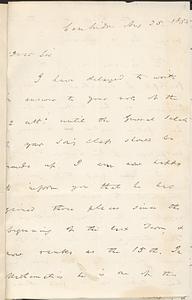 Cambridge Aug 25. 185
Dear Sir
I have delayed to write
in answer to your note of the
2 ult: until the General Scale
of your son's class should be
made up. I am now happy
to inform you that he has
gained three places since the
beginning of the last Term &
now ranks as the 15th. In
Mathematics he is one of the